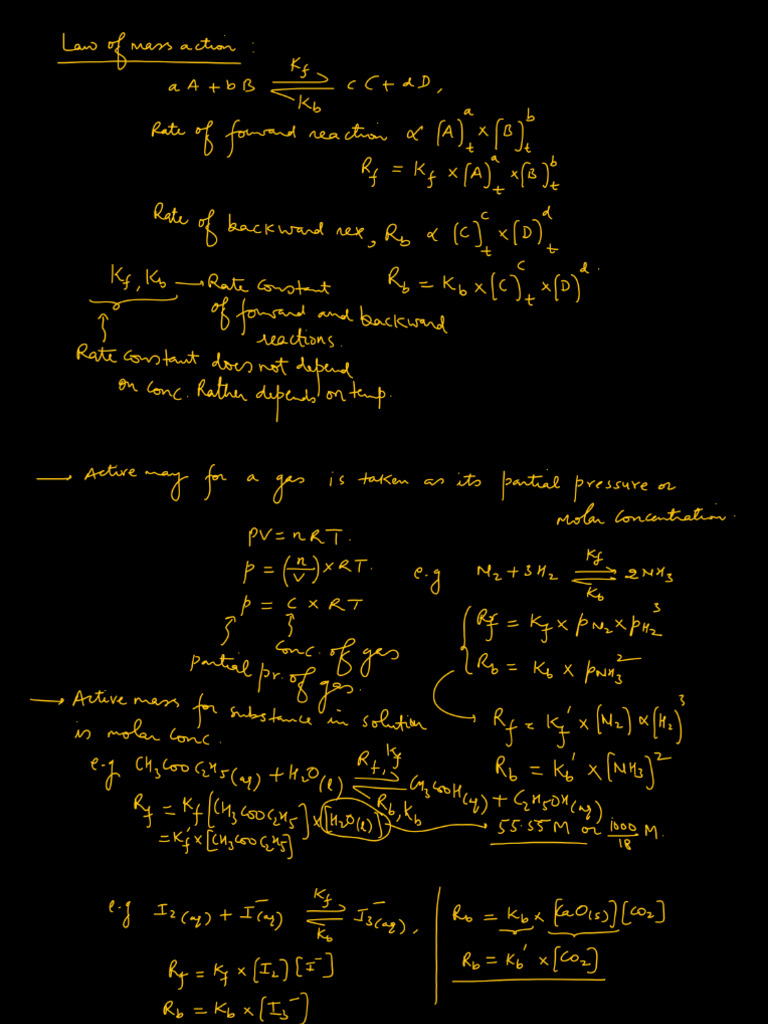 Law of mass action :
aA + bB ⇌ cC + dD,
K_f
K_b
Rate of forward reaction ∝ [A]_t^a × [B]_t^b
R_f = K_f × [A]_t^a × [B]_t^b
Rate of backward rex, R_b ∝ [C]_t^c × [D]_t^d
K_f, K_b → Rate constant
R_b = K_b × [C]_t^c × [D]^d
of forward and backward
reactions.
Rate constant does not depend
on conc. Rather depends on temp.
→ Active may for a gas is taken as its partial pressure or
molar concentration.
PV = nRT.
p = (n/V) × RT.
p = C × RT
conc. of gas
partial pr. of gas.
e.g N2 + 3H2 ⇌ 2NH3
K_f
K_b
R_f = K_f × pN2 × pH2^3
R_b = K_b × pNH3^2
R_f = K_f' × [N2] × [H2]^3
R_b = K_b' × [NH3]^2
→ Active mass for substance in solution
is molar conc.
e.g CH3COOC2H5(aq) + H2O(l) ⇌ CH3COOH(aq) + C2H5OH(aq)
R_f, K_f
R_b, K_b
R_f = K_f [CH3COOC2H5] × [H2O(l)] → 55.55 M or 1000/18 M.
= K_f' × [CH3COOC2H5]
e.g I2(aq) + I^-(aq) ⇌ I3^-(aq),
K_f
K_b
R_f = K_f × [I2] [I^-]
R_b = K_b × [I3^-]
R_b = K_b × [CaO(s)] [CO2]
R_b = K_b' × [CO2]